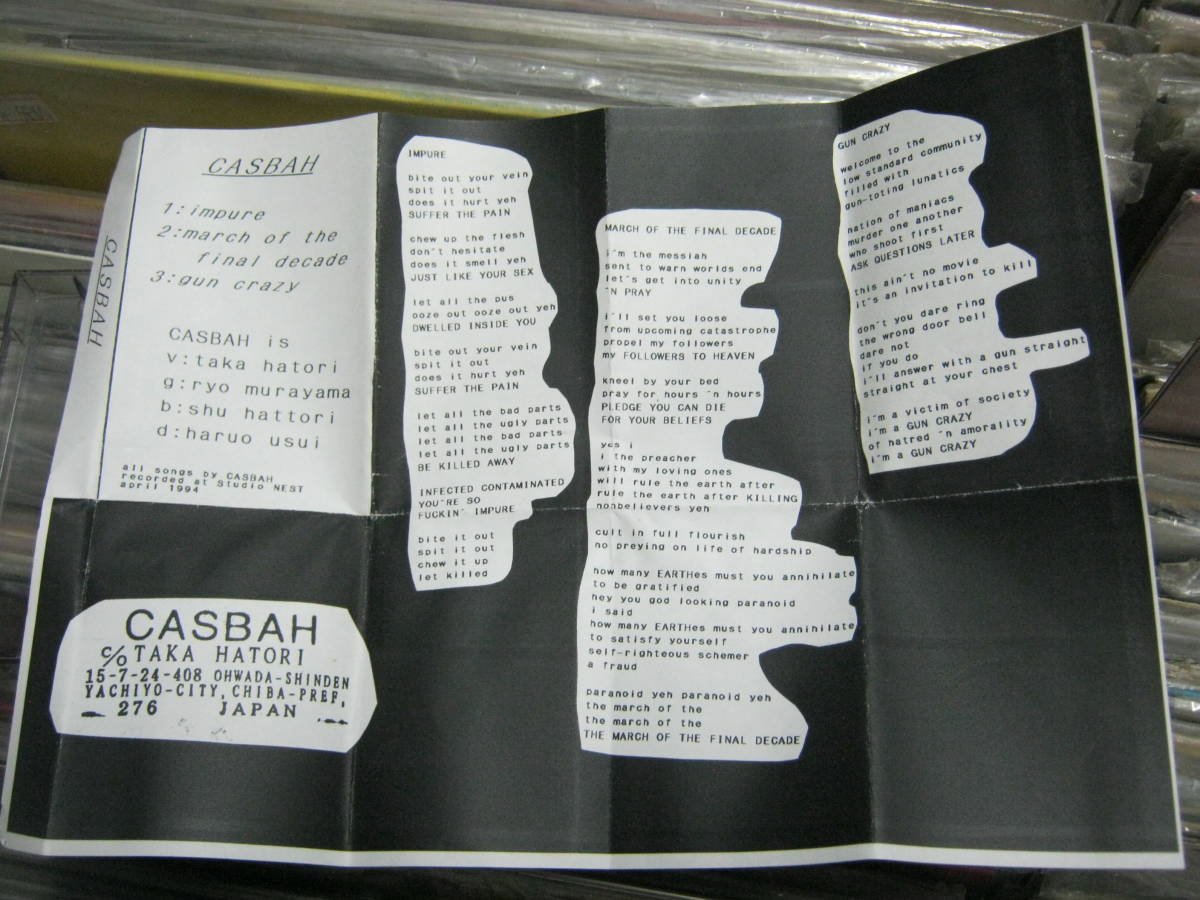 CASBAH
CASBAH
1:impure
2:march of the
final decade
3:gun crazy
CASBAH is
v:taka hatori
g:ryo murayama
b:shu hattori
d:haruo usui
all songs by CASBAH
recorded at Studio NEST
april 1994
CASBAH
c/o TAKA HATORI
15-7-24-408 OHWADA-SHINDEN
YACHIYO-CITY, CHIBA-PREF,
276 JAPAN
IMPURE
bite out your vein
spit it out
does it hurt yeh
SUFFER THE PAIN
chew up the flesh
don't hesitate
does it smell yeh
JUST LIKE YOUR SEX
let all the pus
ooze out ooze out yeh
DWELLED INSIDE YOU
bite out your vein
spit it out
does it hurt yeh
SUFFER THE PAIN
let all the bad parts
let all the ugly parts
let all the bad parts
let all the ugly parts
BE KILLED AWAY
INFECTED CONTAMINATED
YOU'RE SO
FUCKIN' IMPURE
bite it out
spit it out
chew it up
let killed
MARCH OF THE FINAL DECADE
i'm the messiah
sent to warn worlds end
let's get into unity
'N PRAY
i'll set you loose
from upcoming catastrophe
propel my followers
my FOLLOWERS TO HEAVEN
kneel by your bed
pray for hours 'n hours
PLEDGE YOU CAN DIE
FOR YOUR BELIEFS
yes i
i the preacher
with my loving ones
will rule the earth after
rule the earth after KILLING
nonbelievers yeh
cult in full flourish
no preying on life of hardship
how many EARTHes must you annihilate
to be gratified
hey you god looking paranoid
i said
how many EARTHes must you annihilate
to satisfy yourself
self-righteous schemer
a fraud
paranoid yeh paranoid yeh
the march of the
the march of the
THE MARCH OF THE FINAL DECADE
GUN CRAZY
welcome to the
low standard community
filled with
gun-toting lunatics
nation of maniacs
murder one another
who shoot first
ASK QUESTIONS LATER
this ain't no movie
it's an invitation to kill
don't you dare ring
the wrong door bell
dare not
if you do
i'll answer with a gun straight
straight at your chest
i'm a victim of society
i'm a GUN CRAZY
of hatred 'n amorality
i'm a GUN CRAZY